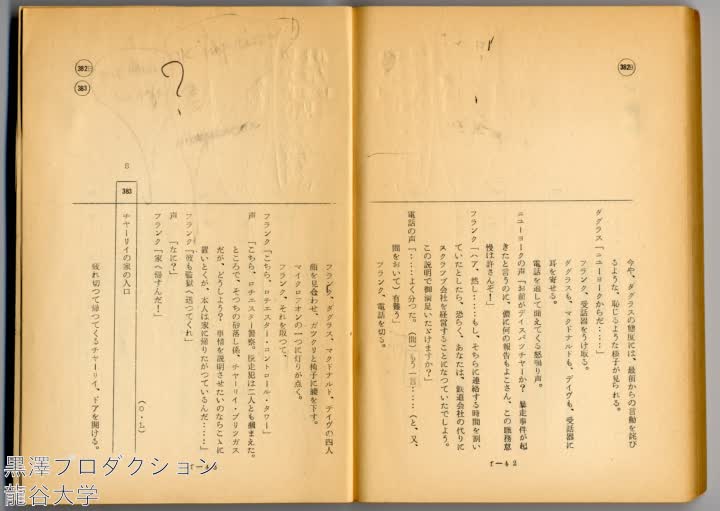 382日
今や、ダグラスの態度には、最前からの言動を詫び
るような、恥じるような様子が見られる。
ダグラス「ニューヨークからだ・・・・」
フランク、受話器をうけ取る。
ダグラスも、マクドナルドも、デイヴも、受話器に
耳を寄せる。
電話を通して聞えてくる怒鳴り声。
ニューヨークの声「お前がディスパッチャーか? 暴走事件が起
きたと言うのに、儂に何の報告もよこさん、この職務怠
慢は許さんぞ!」
フランク「ハア、然し・・・・もし、そちらに連絡する時間を割い
ていたとしたら、恐らく、あなたは、鉄道会社の代りに
スクラップ会社を経営することになつていたでしょう。
この説明で御満足いたゞけますか?」
電話の声「・・・・よく分つた。(間)もう一言・・・・(と、又、
間をおいて)有難う」
フランク、電話を切る。
f—42
382日
383
?
フランク、ダグラス、マクドナルド、デイヴの四人
顔を見合わせ、ガックリと椅子に腰を下す。
マイクロフォンの一つに灯りが点く。
フランク、それを取つて、
フランク「こちら、ロチェスター・コントロール・タワー」
声「こちら、ロチェスター警察。脱走犯は二人とも捕まえた。
ところで、そっちの砂落し係、チャーリイ・ブリッガス
だが、どうしよう? 事情を説明させたいのならこゝに
置いとくが、本人は家に帰りたがつているんだ・・・・」
フランク「彼も監獄へ送つてくれ」
声「なに?」
フランク「家へ帰すんだ!」
(O・L)
S
383
チャーリイの家の入口
疲れ切つて帰つてくるチャーリイ、ドアを開ける。
f—43
黒澤プロダクション
龍谷大学